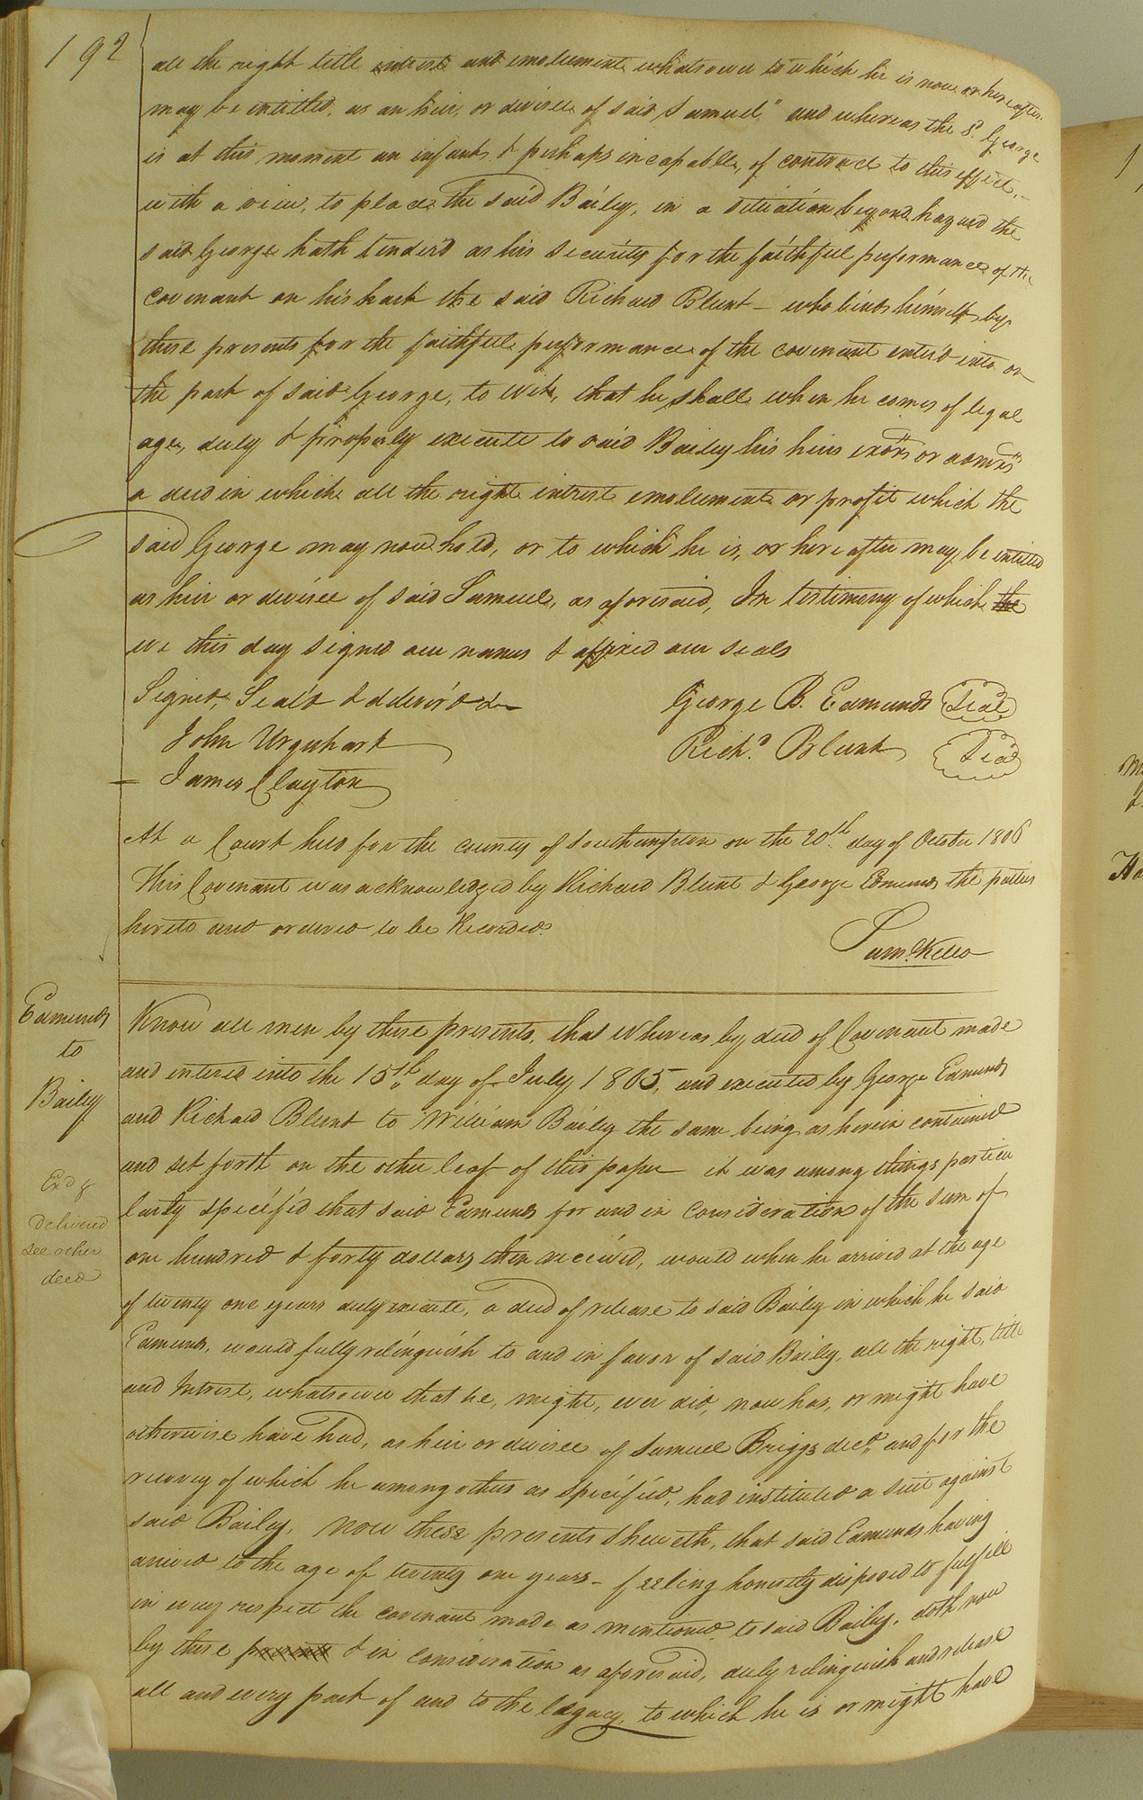 192
all the right title intrest and emolument whatsoever to which he is now or hereafter
may be intitled, as an heir, or devisee of said Samuel" and whereas the sd. George
is at this moment an infant, & perhaps incapable, of contract to this effect,-
with a view, to place the said Baily, in a situation beyond hazard the
said George hath tender'd as his security for the faithful performance of the
covenant on his part the said Richard Blunt - who binds himself by
these presents for the faithfull performance of the covenant enter'd into on
the part of said George, to wit, that he shall when he comes of legal
age, duly & properly execute to said Bailey his heirs exors or admrs
a deed in which all the right intrest emolument or profit which the
said George may now hold, or to which he is, or hereafter may be intitled
as heir or devisee of said Samuel, as aforesaid, In testimony of which the
we this day signed our names & affixed our seals
Signed, Seal'd & deliver'd in
George B. Edmunds Seal
John Urquhart
Richd. Blunt Seal
James Clayton
At a Court held for the county of Southampton on the 20th. day of October 1806
This Covenant was acknowledged by Richard Blunt & George Edmunds the parties
hereto and ordered to be Recorded.
Saml. Kello
Edmunds
to
Bailey
Exd &
Delivered
see other
deed
Know all men by these presents, that Whereas by deed of Covenant made
and entered into the 15th. day of July 1805, and executed by George Edmunds
and Richard Blunt to William Baily the same being as herein contained
and set forth on the other leaf of this paper it was among things particu
larly specified that said Edmunds for and in consideration of the sum of
one hundred & forty dollars then received, would when he arrived at the age
of twenty one years duly execute, a deed of release to said Baily in which he said
Edmunds, would fully relinquish to and in favor of said Baily, all the right, title
and Intrest, whatsoever that he, might, ever did, now has, or might have
otherwise have had, as heir or devisee of Samuel Briggs decd. and for the
recovery of which he among others as specified, had instituted a suit against
said Baily, Now these presents sheweth, that said Edmunds having
arrived to the age of twenty one years - feeling honestly disposed to fulfill
in every respect the covenant made as mentioned to said Baily, doth now
by these presents & in consideration as aforesaid, duly relinquish and release
all and every part of and to the legacy, to which he is or might have